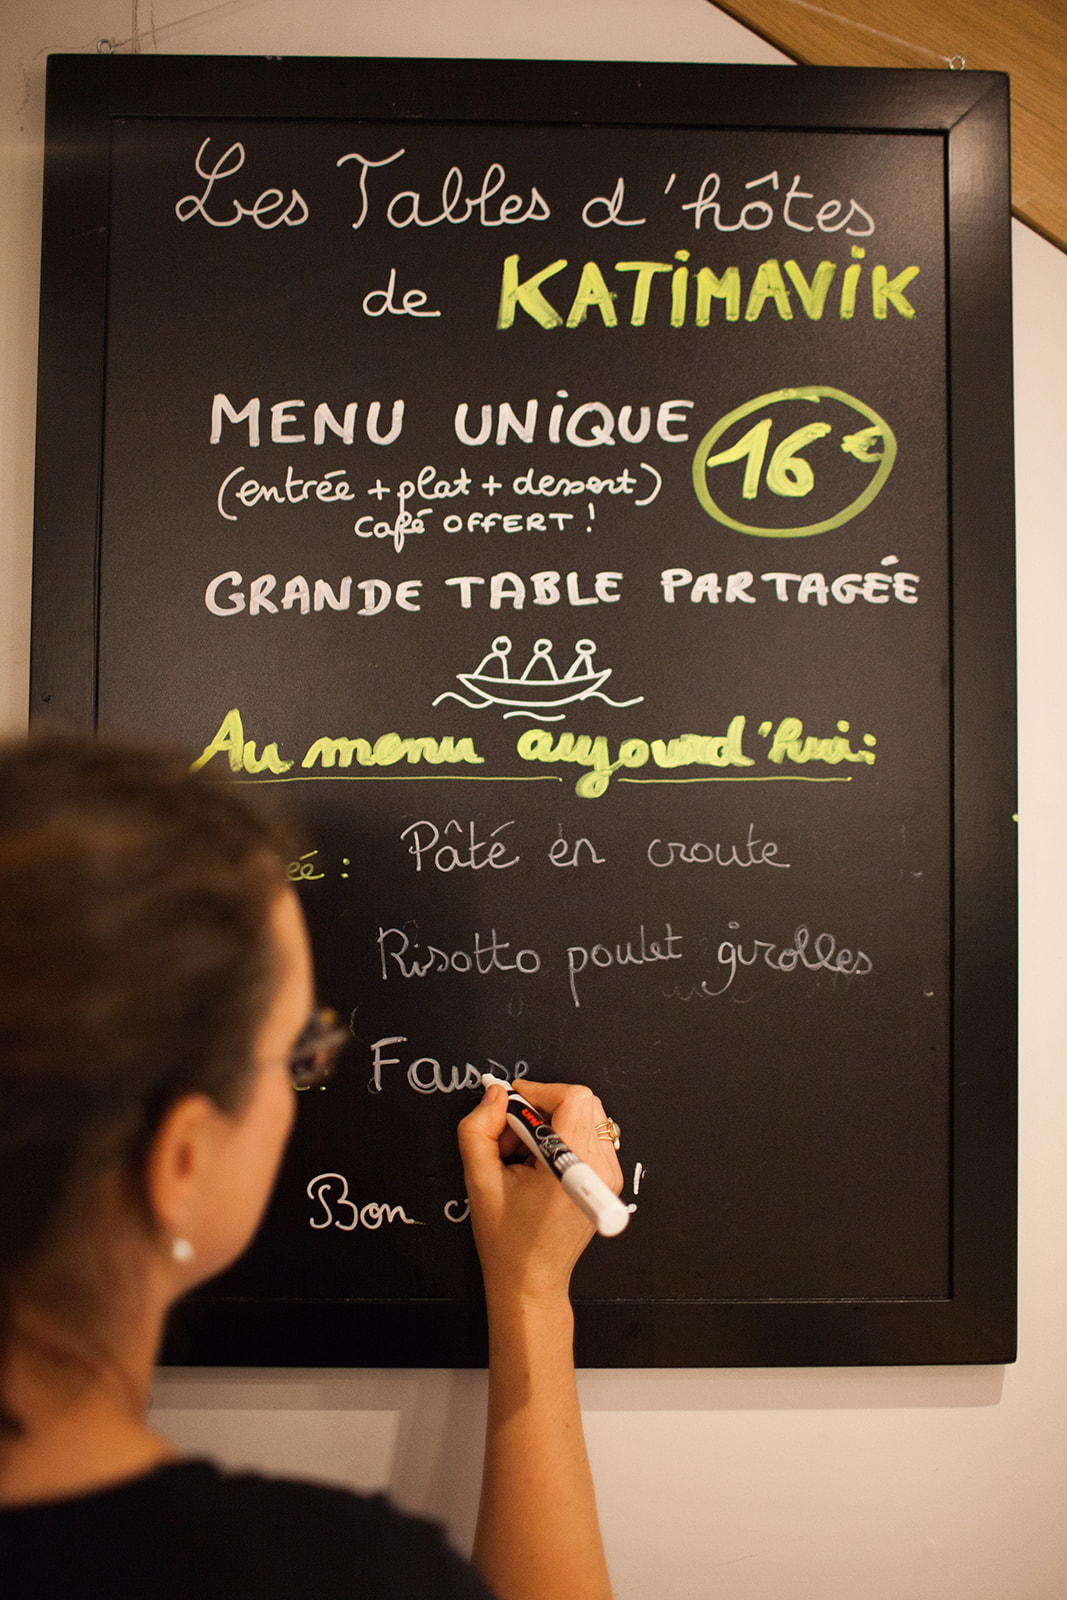 Les Tables d'hôtes
de KATIMAVIK
MENU UNIQUE 16 €
(entrée + plat + dessert)
café OFFERT !
GRANDE TABLE PARTAGÉE
Au menu aujourd'hui:
éé : Pâté en croute
Risotto poulet girolles
: Fausse
Bon !
uni